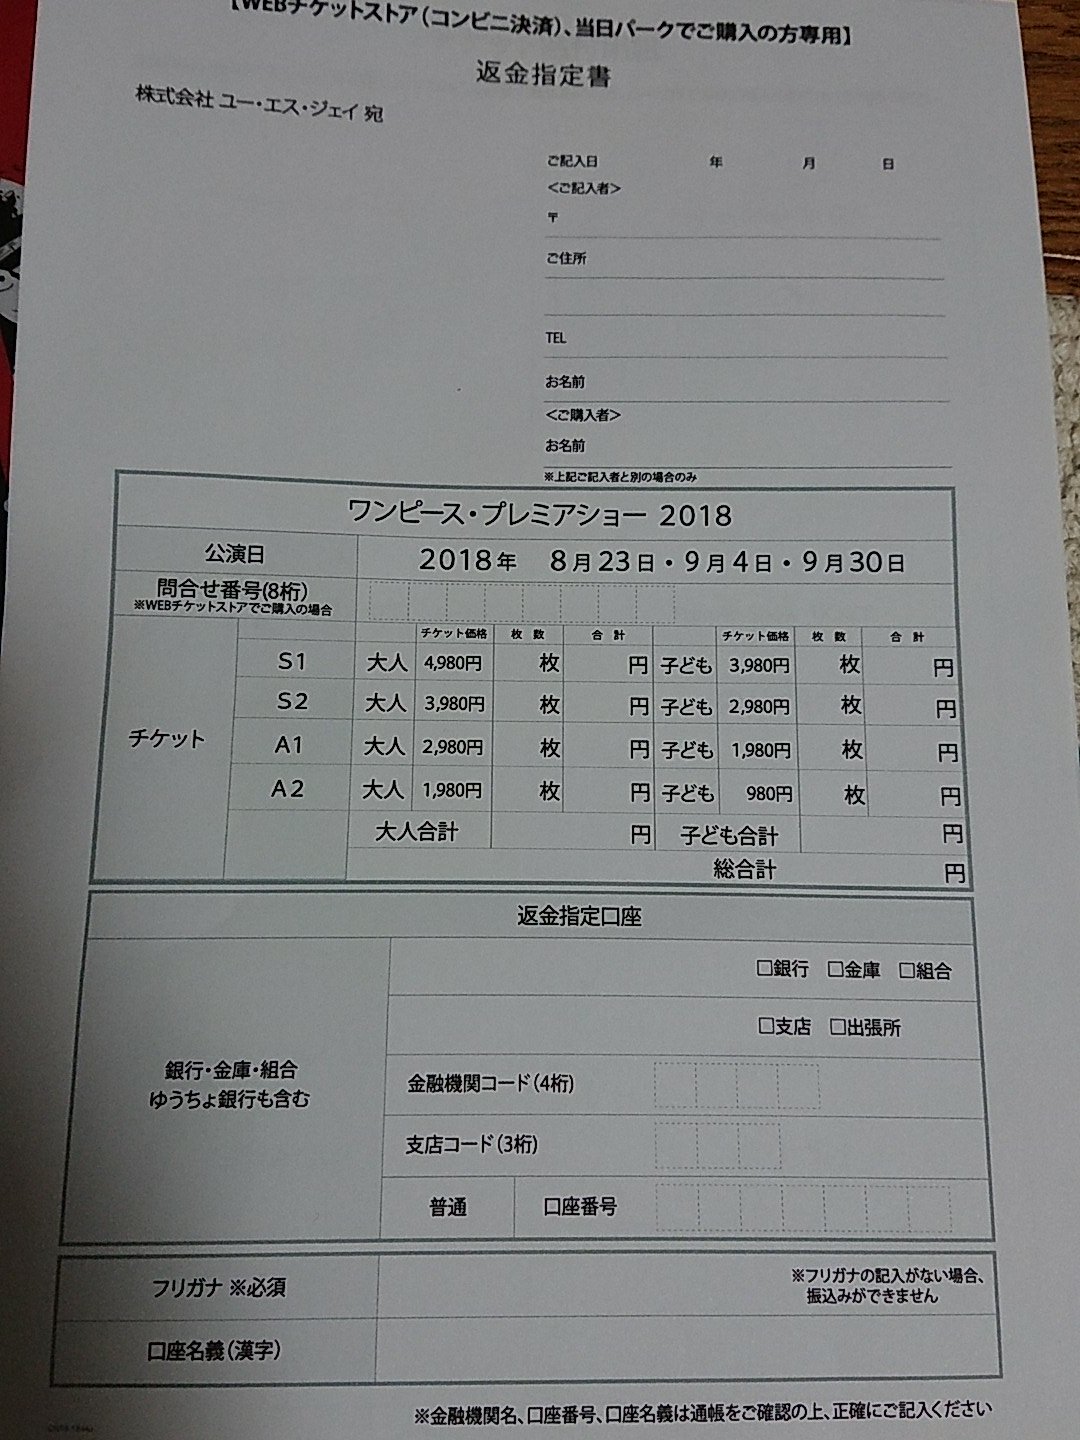 【WEBチケットストア(コンビニ決済)、当日パークでご購入の方専用】
返金指定書
株式会社 ユー・エス・ジェイ 宛
ご記入日 年 月 日
<ご記入者>
〒
ご住所
TEL
お名前
<ご購入者>
お名前
※上記ご記入者と別の場合のみ
ワンピース・プレミアショー 2018
公演日 2018年 8月23日・9月4日・9月30日
問合せ番号(8桁)
※WEBチケットストアでご購入の場合
チケット価格 枚数 合計 チケット価格 枚数 合計
S1 大人 4,980円 枚 円 子ども 3,980円 枚 円
S2 大人 3,980円 枚 円 子ども 2,980円 枚 円
チケット
A1 大人 2,980円 枚 円 子ども 1,980円 枚 円
A2 大人 1,980円 枚 円 子ども 980円 枚 円
大人合計 円 子ども合計 円
総合計 円
返金指定口座
□銀行 □金庫 □組合
□支店 □出張所
銀行・金庫・組合
ゆうちょ銀行も含む
金融機関コード(4桁)
支店コード(3桁)
普通 口座番号
フリガナ ※必須
※フリガナの記入がない場合、
振込みができません
口座名義(漢字)
※金融機関名、口座番号、口座名義は通帳をご確認の上、正確にご記入ください